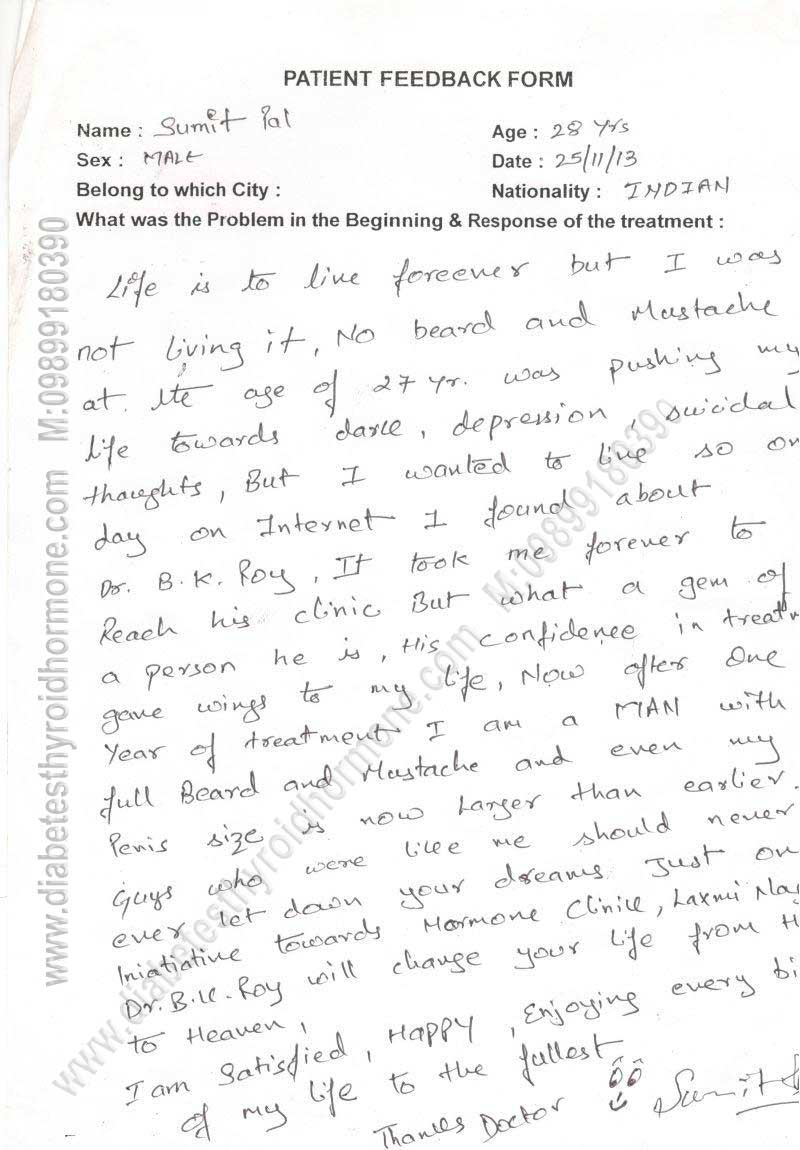 PATIENT FEEDBACK FORM
Name : Sumit Pal
Age : 28 Yrs
Sex : MALE
Date : 25/11/13
Belong to which City :
Nationality : INDIAN
What was the Problem in the Beginning & Response of the treatment :
Life is to live foreever but I was
not living it, No beard and Mustache
at the age of 27 yr. was pushing my
life towards darke, depression, suicidal
thoughts, But I wanted to live so on
day on Internet I found about
Dr. B.K. Roy, It took me forever to
Reach his clinic But what a gem of
a person he is, His confidence in treatm
gave wings to my life, Now after One
Year of treatment I am a MAN with
full Beard and Mustache and even my
Penis size is now Larger than earlier.
Guys who were like me should never
ever let down your dreams Just on
Iniatiative towards Harmone Clinic, Laxmi Nag
Dr. B.K. Roy will change your life from H
to Heaven,
I am Satisfied, HAPPY, Enjoying every bi
of my life to the fullest
Thanks Doctor Sumit
www.diabetesthyroidhormone.com M:09899180390
www.diabetesthyroidhormone.com M:09899180390